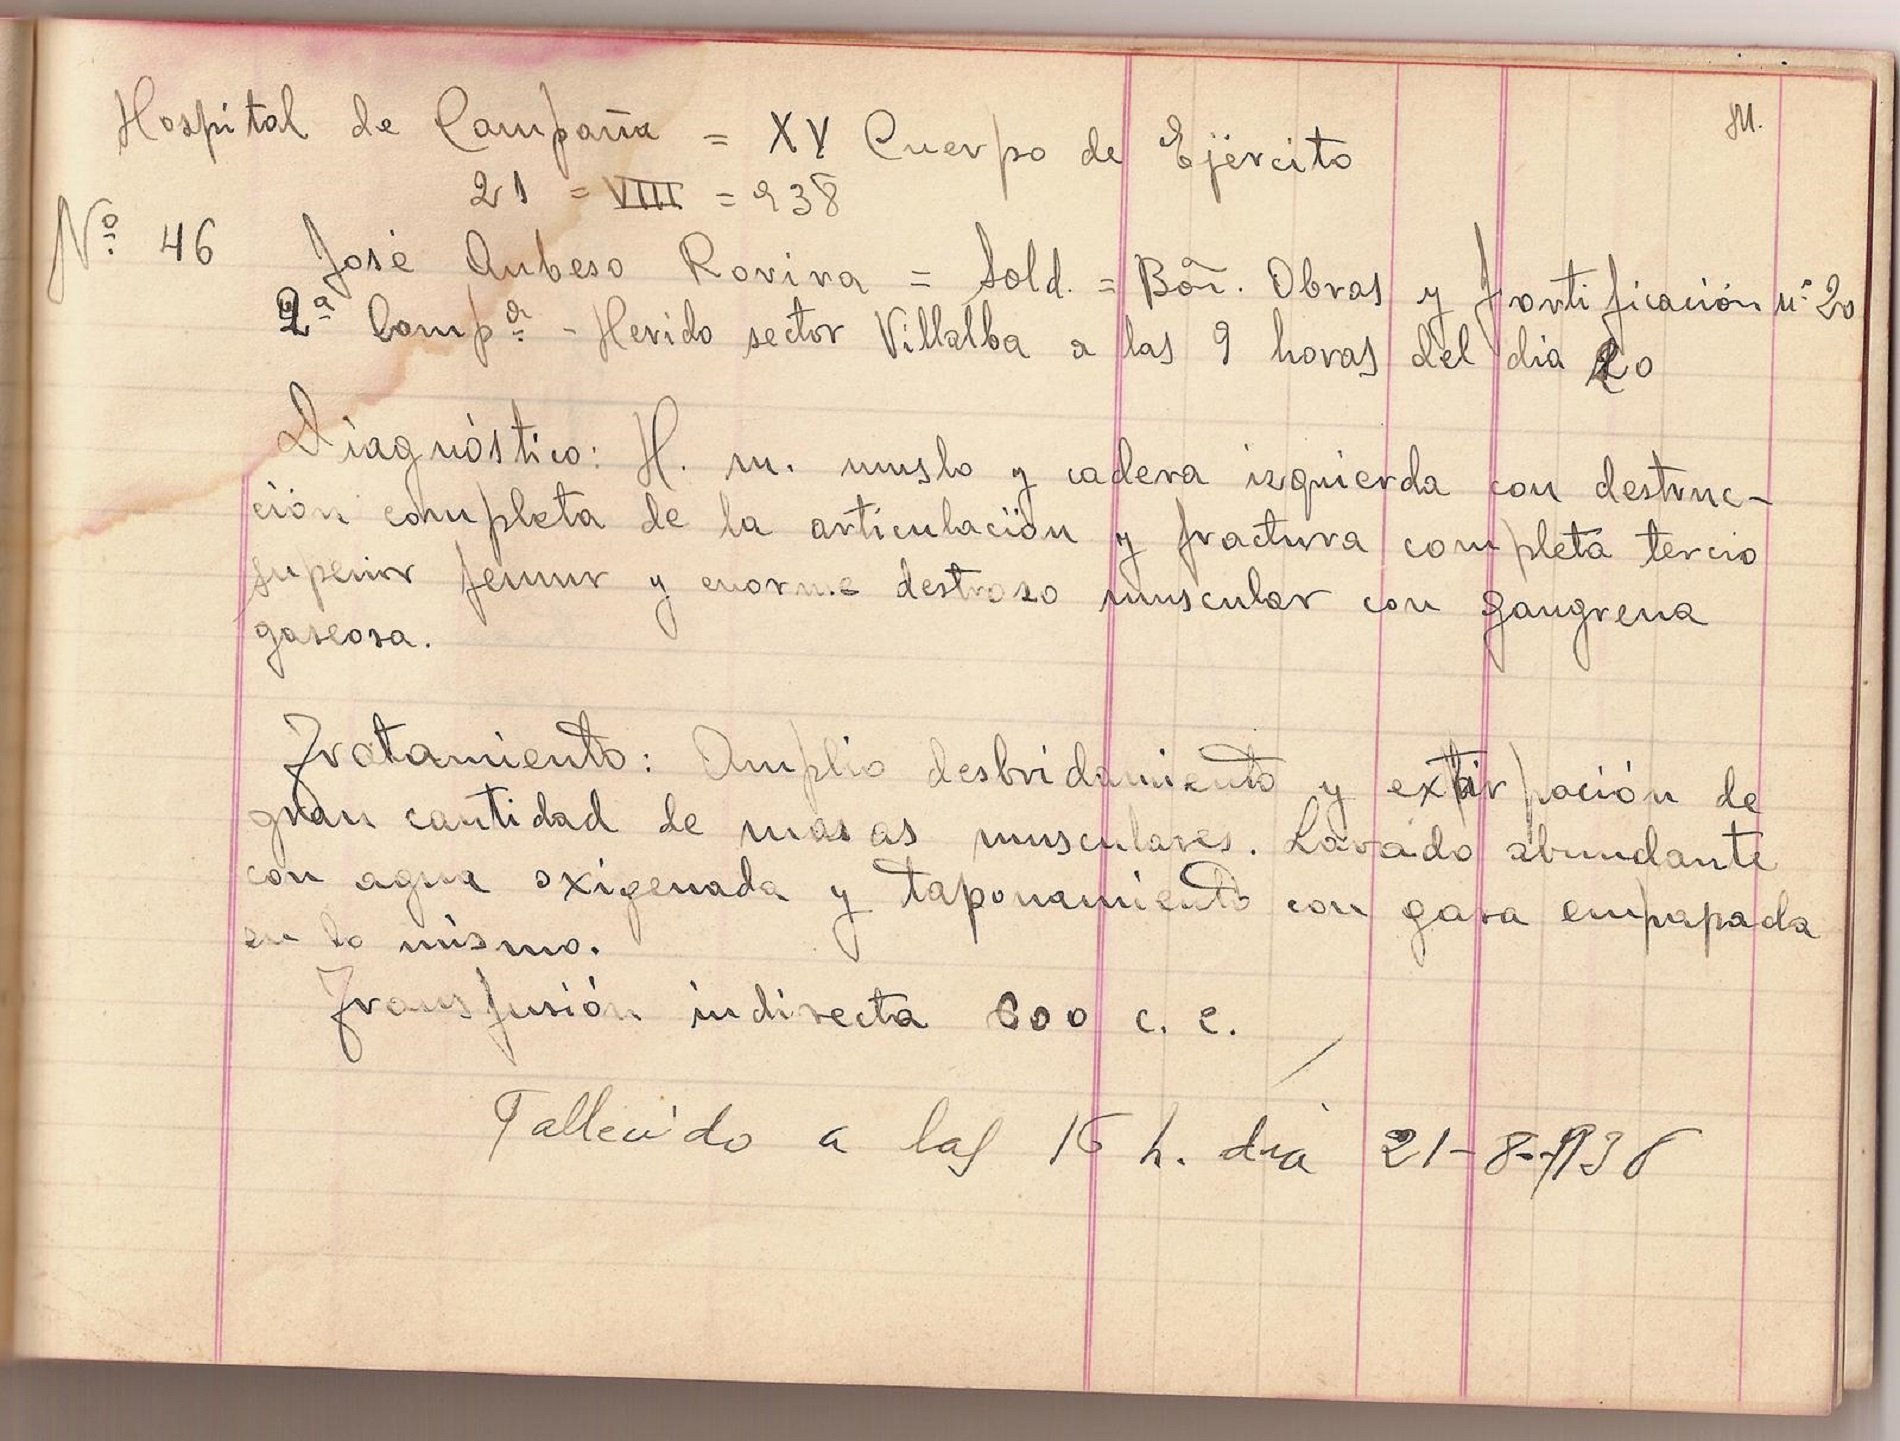 M.
Hospital de Campaña = XV Cuerpo de Ejército
21 = VIII = 938
Nº 46 José Aubeso Rovira = Sold. = Bón. Obras y fortificación nº 20
2ª Compª - Herido sector Villalba a las 9 horas del dia 20
Diagnóstico: H. m. muslo y cadera izquierda con destruc-
ción completa de la articulación y fractura completa tercio
superior femur y enorme destrozo muscular con gangrena
gaseosa.
Tratamiento: Amplio desbridamiento y extirpación de
gran cantidad de masas musculares. Lavado abundante
con agua oxigenada y taponamiento con gasa empapada
en lo mismo.
Transfusión indirecta 600 c. c.
Fallecido a las 16 h. día 21-8-1938